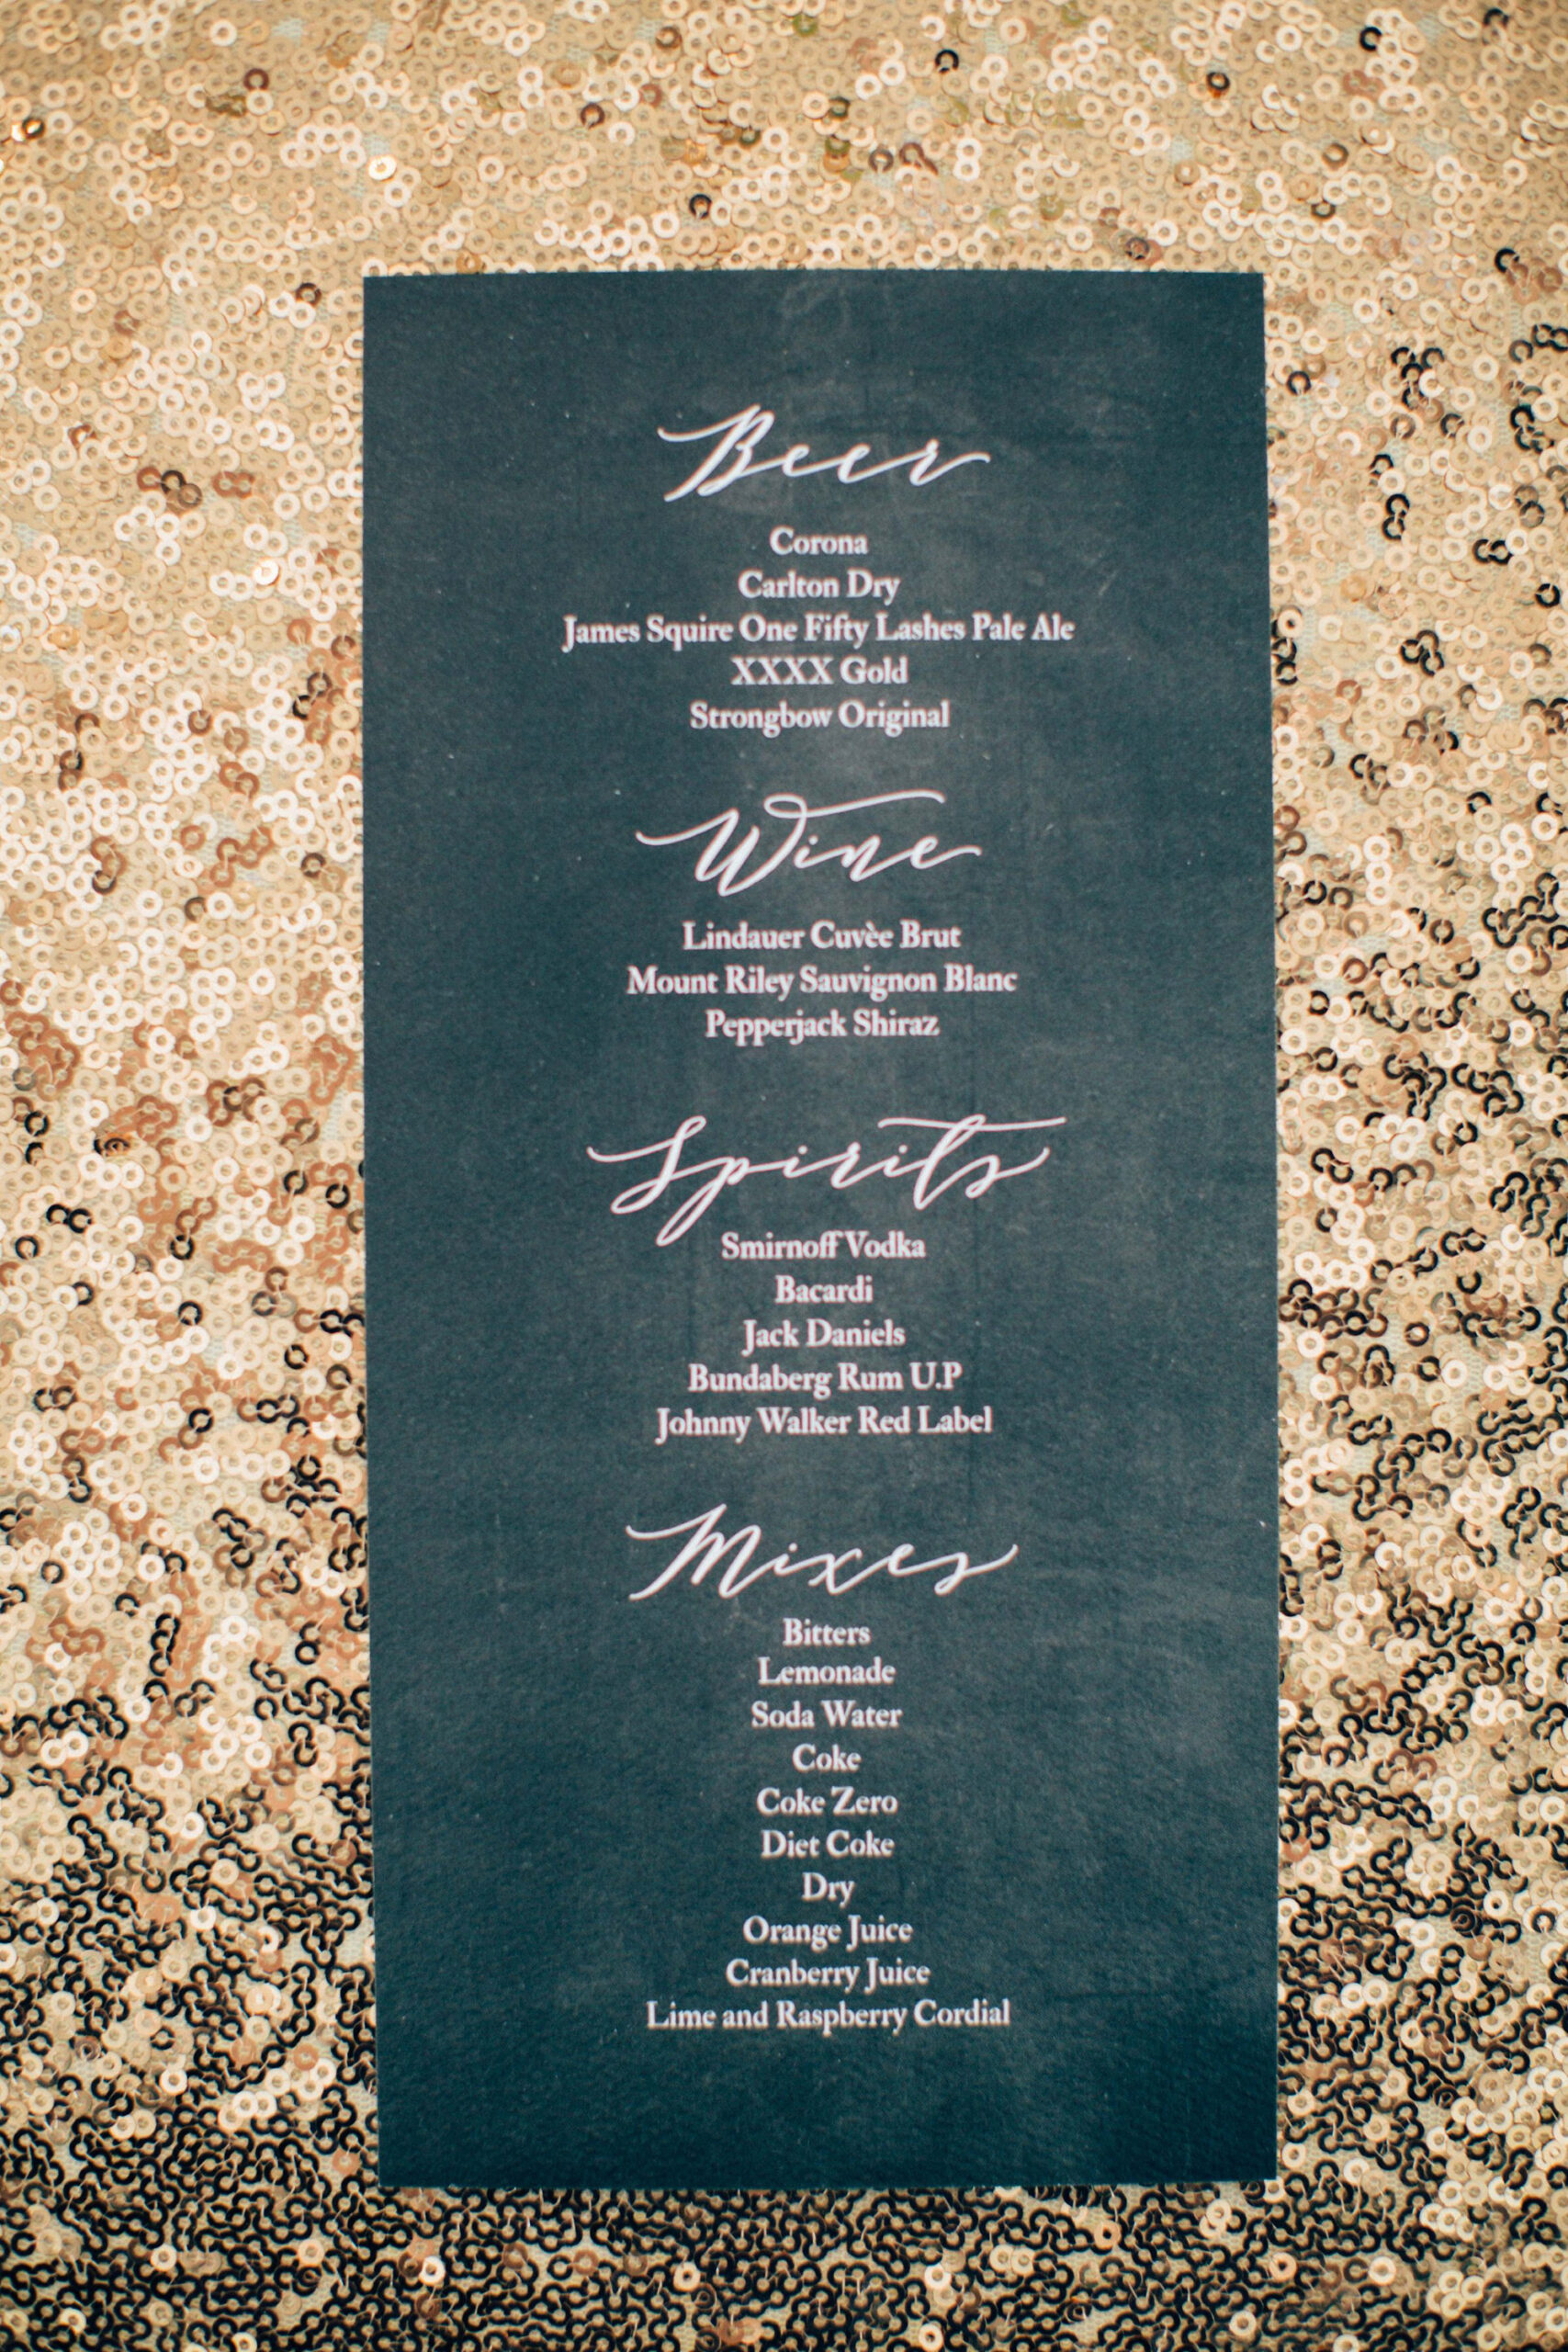 Beer
Corona
Carlton Dry
James Squire One Fifty Lashes Pale Ale
XXXX Gold
Strongbow Original
Wine
Lindauer Cuvèe Brut
Mount Riley Sauvignon Blanc
Pepperjack Shiraz
Spirits
Smirnoff Vodka
Bacardi
Jack Daniels
Bundaberg Rum U.P
Johnny Walker Red Label
Mixes
Bitters
Lemonade
Soda Water
Coke
Coke Zero
Diet Coke
Dry
Orange Juice
Cranberry Juice
Lime and Raspberry Cordial